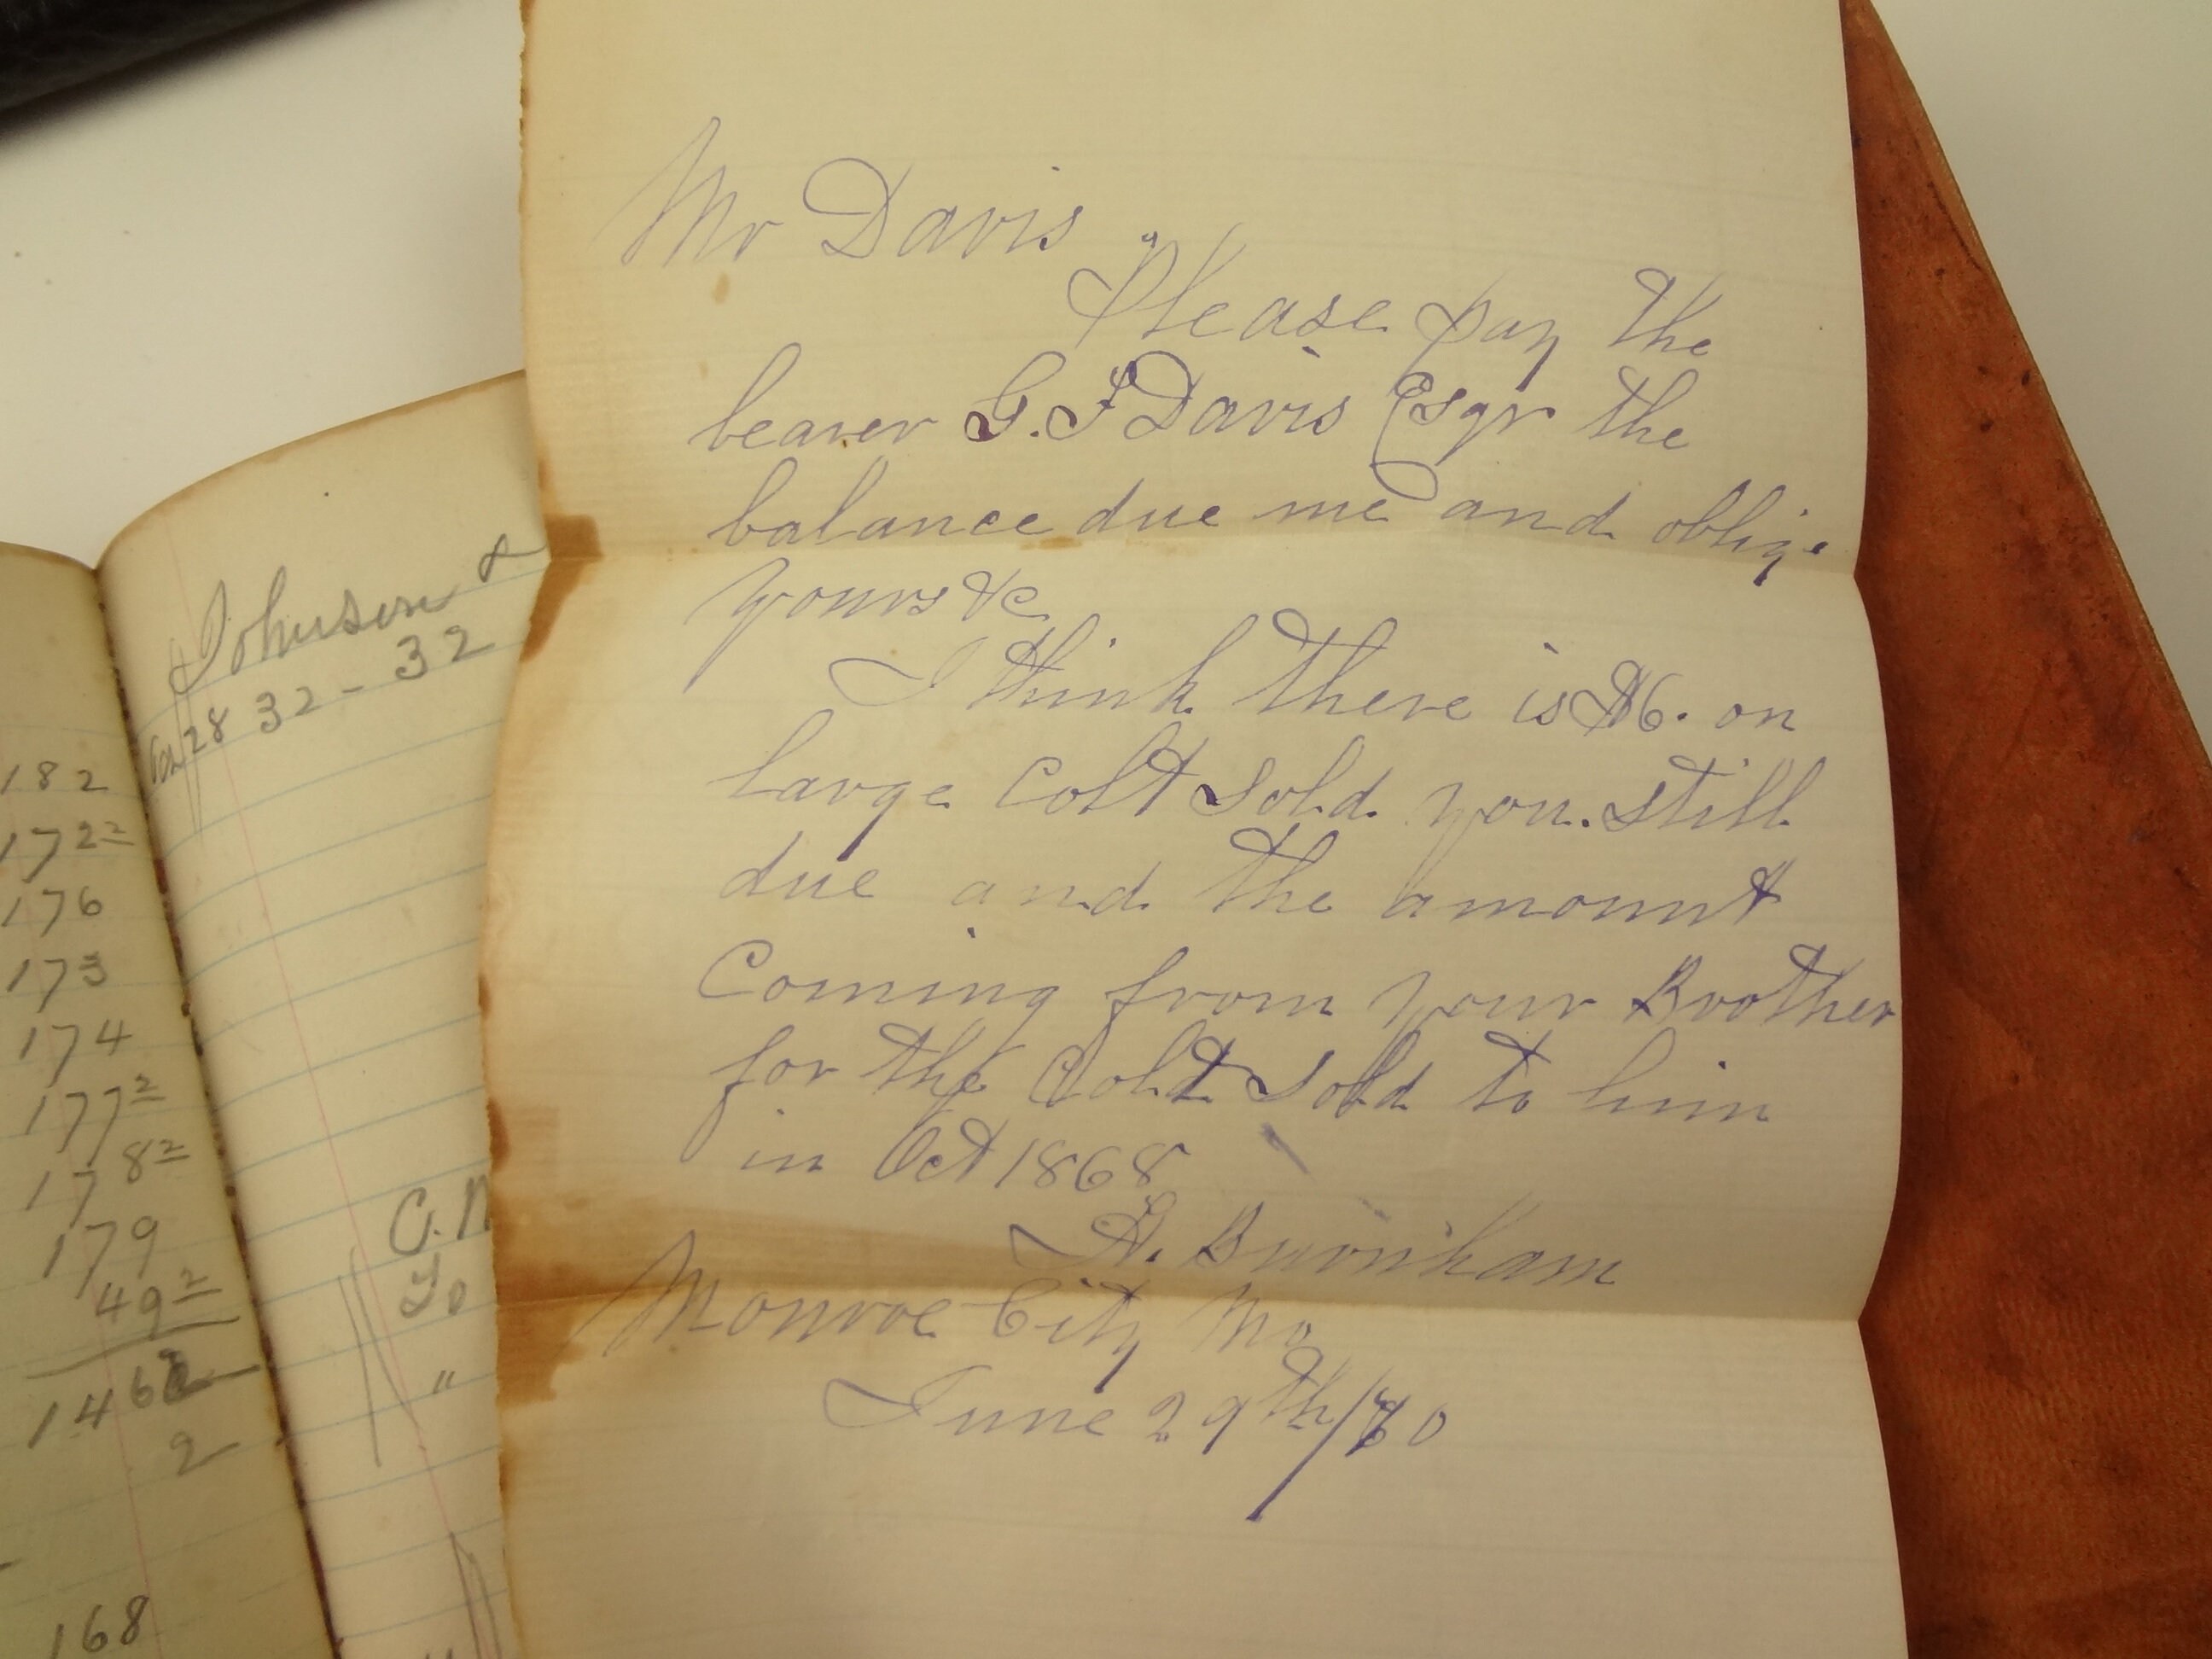 Mr Davis
Please pay the
bearer G. F Davis Esqr the
balance due me and oblige
yours &c
I think there is $6. on
large Colt Sold you. still
due and the amount
Coming from your Brother
for the Colt Sold to him
in Oct 1868
A. Burnham
Monroe City Mo
June 29th/70
Johnson &
28 32 - 32
C.
To
"
182
172 2
176
173
174
177 2
178 2
179
49 2
146
2
168